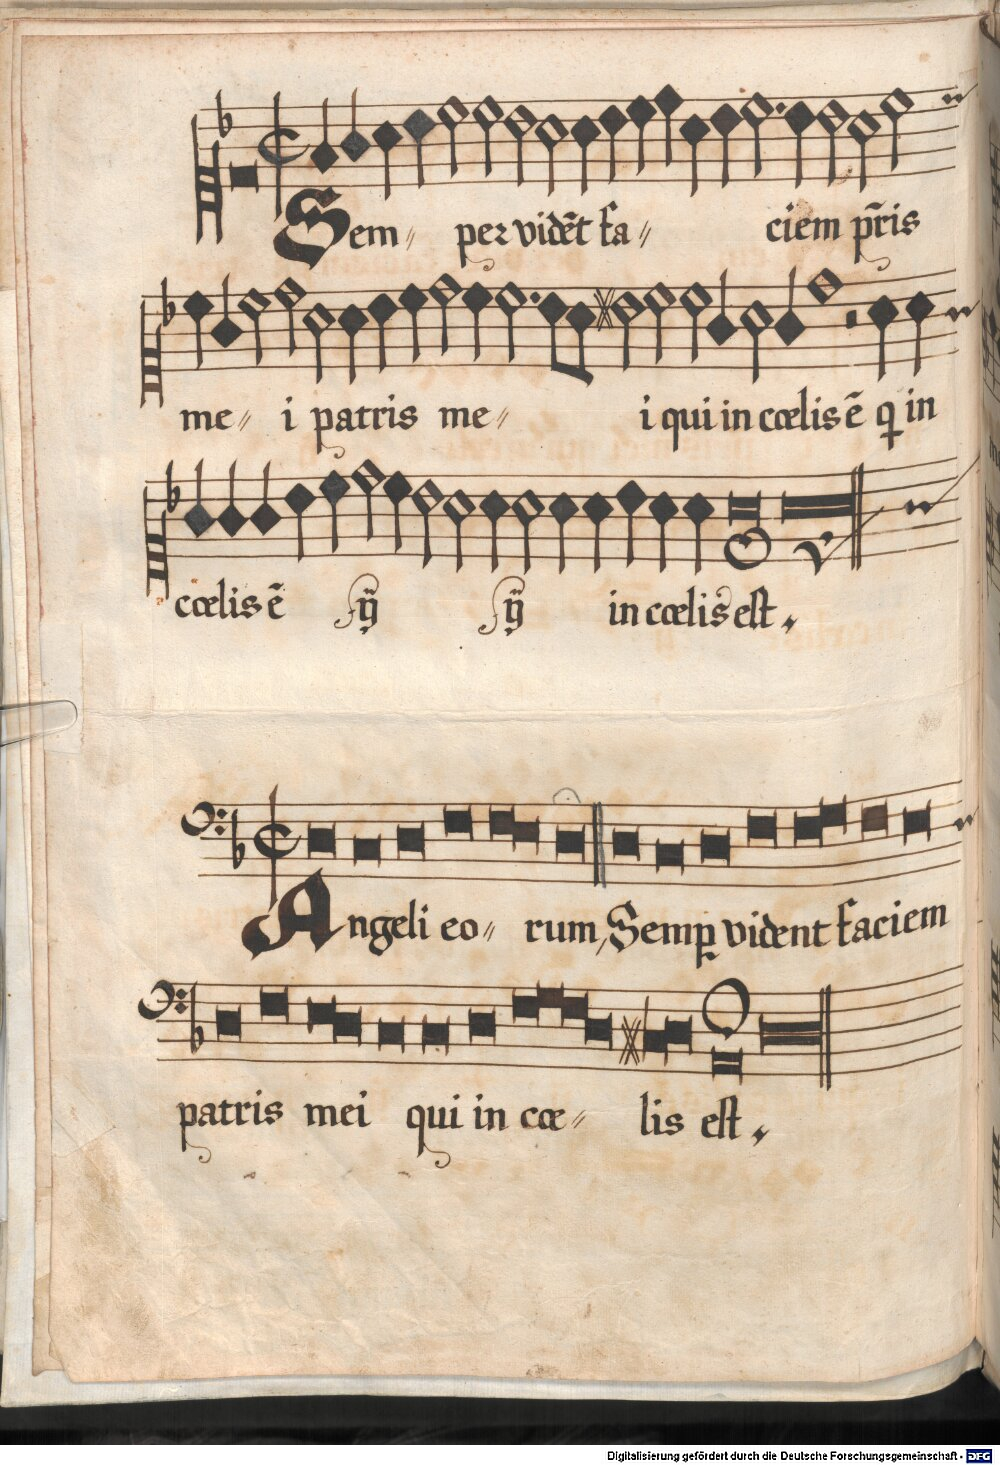 Sem〃 per vidēt fa〃 ciem pr̄is
me〃 i patris me〃 i qui in cœlis ē q in
cœlis ē ij ij in cœlis est
Angeli eo〃 rum, Semꝑ vident faciem
patris mei qui in cœ〃 lis est
Digitalisierung gefördert durch die Deutsche Forschungsgemeinschaft - DFG